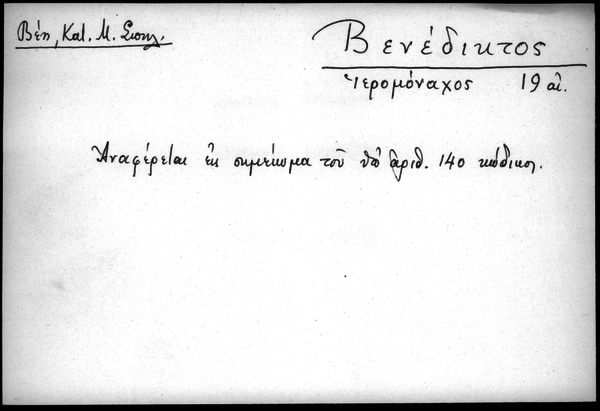 Βέη, Κατ. Μ.
Βενέδικτος
Ἱερομόναχος 19 αἰ.
Ἀναφέρεται εἰς σημείωμα τοῦ ὑπ' ἀριθ. 140 κώδικος.